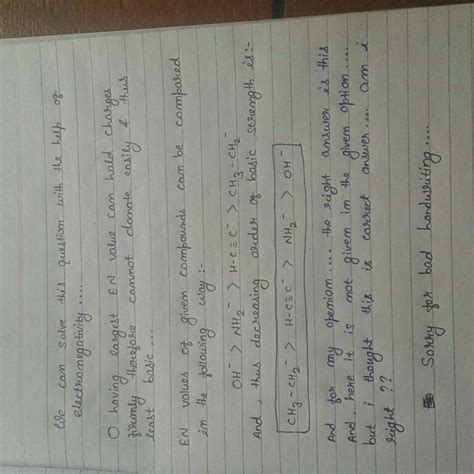 We can solve this question with the help of
electronegativity ....
O having largest EN value can hold charges
firmly therefore cannot donate easily & thus
least basic ...
EN values of given compounds can be compared
in the following way :-
OH⁻ > NH₂⁻ > H-C≡C⁻ > CH₃-CH₂⁻
And , thus decreasing order of basic strength is:-
CH₃-CH₂⁻ > H-C≡C⁻ > NH₂⁻ > OH⁻
And for my openiom .... the right answer is this
And, here it is not given im the given option.....
but i thought this is carrect answer.... am i
right ??
Sorry for bad handwriting ....